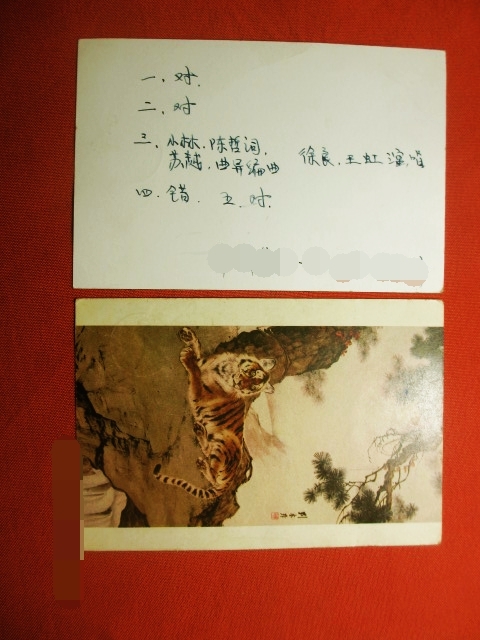 一、对.
二、对
三、小林、陈哲词、
苏越、曲异编曲 徐良、王虹演唱
四、错、 五、对、